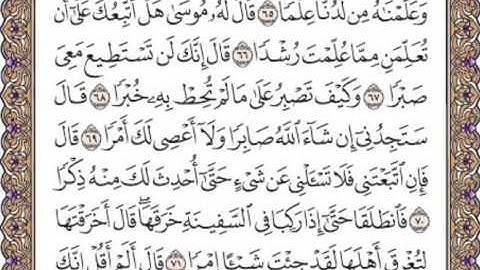 وَعَلَّمْنَٰهُ مِن لَّدُنَّا عِلْمًا ۝٦٥ قَالَ لَهُۥ مُوسَىٰ هَلْ أَتَّبِعُكَ عَلَىٰٓ أَن
تُعَلِّمَنِ مِمَّا عُلِّمْتَ رُشْدًا ۝٦٦ قَالَ إِنَّكَ لَن تَسْتَطِيعَ مَعِىَ
صَبْرًا ۝٦٧ وَكَيْفَ تَصْبِرُ عَلَىٰ مَا لَمْ تُحِطْ بِهِۦ خُبْرًا ۝٦٨ قَالَ
سَتَجِدُنِىٓ إِن شَآءَ ٱللَّهُ صَابِرًا وَلَآ أَعْصِى لَكَ أَمْرًا ۝٦٩ قَالَ
فَإِنِ ٱتَّبَعْتَنِى فَلَا تَسْـَٔلْنِى عَن شَىْءٍ حَتَّىٰٓ أُحْدِثَ لَكَ مِنْهُ ذِكْرًا
۝٧٠ فَٱنطَلَقَا حَتَّىٰٓ إِذَا رَكِبَا فِى ٱلسَّفِينَةِ خَرَقَهَا ۖ قَالَ أَخَرَقْتَهَا
لِتُغْرِقَ أَهْلَهَا لَقَدْ جِئْتَ شَيْـًٔا إِمْرًا ۝٧١ قَالَ أَلَمْ أَقُلْ إِنَّكَ